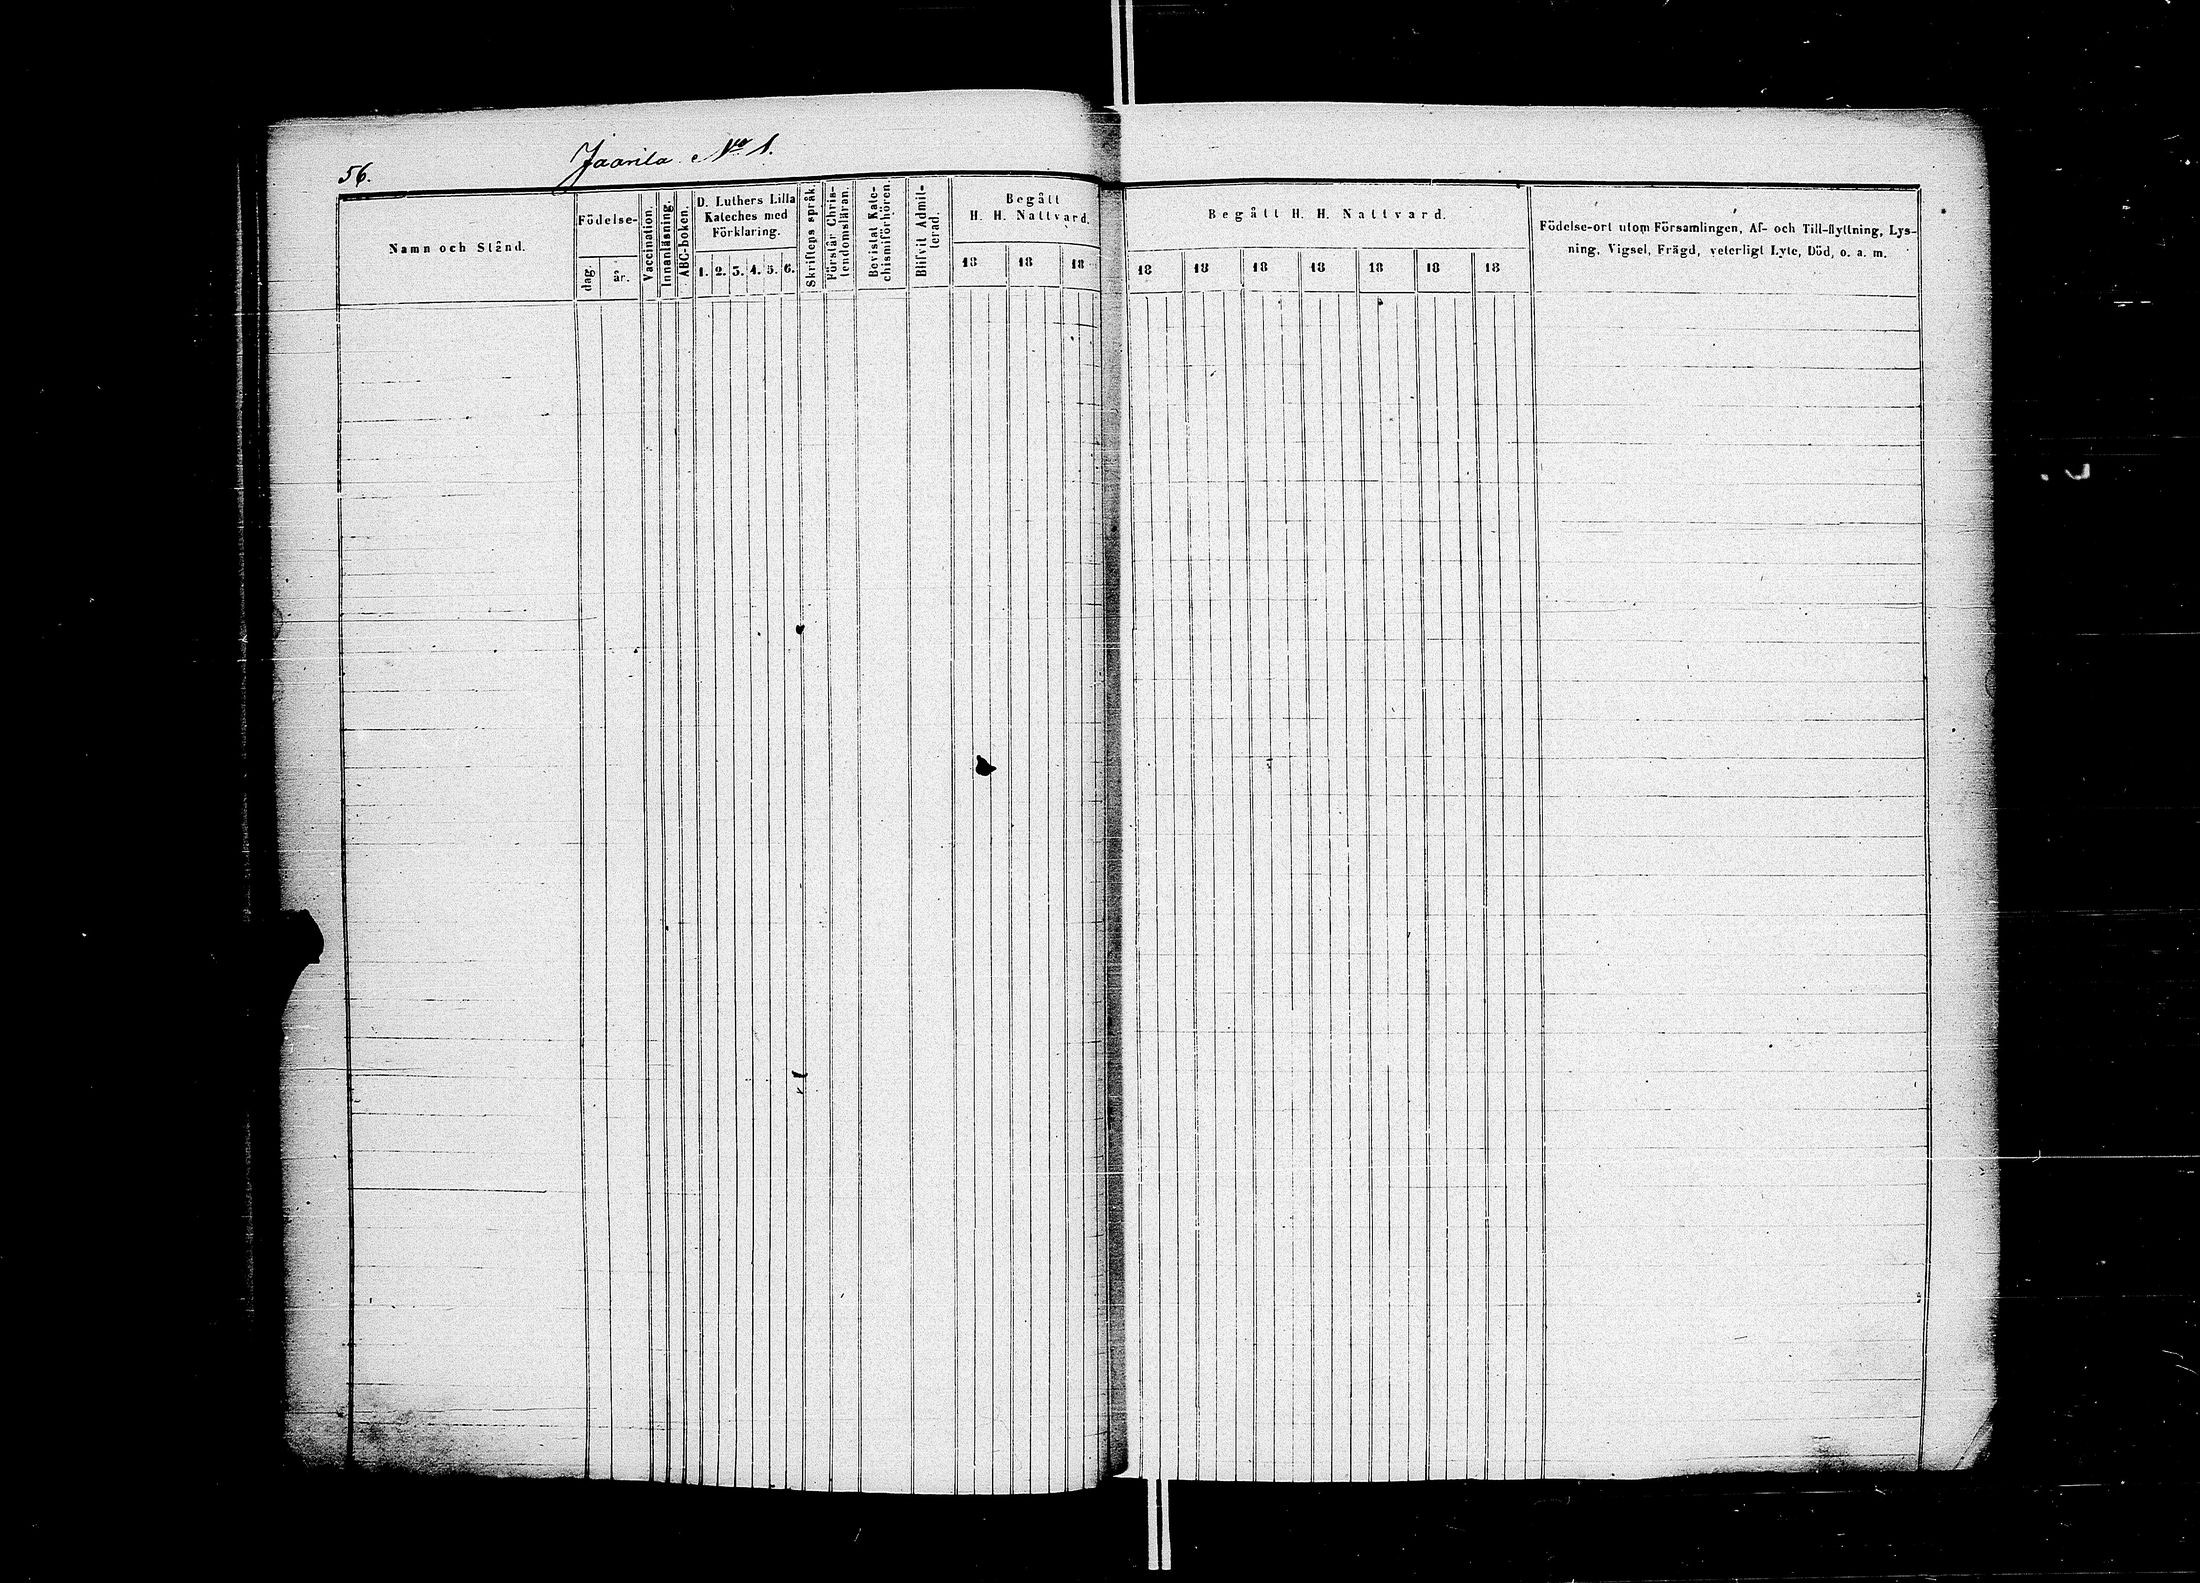 56.
Jaarila No 1.
Namn och Stånd.
Födelse-
dag.
år.
Vaccination.
Innanläsning.
ABC-boken.
D. Luthers Lilla
Kateches med
Förklaring.
1. 2. 3. 4. 5. 6.
Skriftens språk.
Förstår Chris-
tendomsläran.
Bevistat Kate-
chismiförhören.
Blifvit Admit-
terad.
Begått
H. H. Nattvard.
18 18 18
Begått H. H. Nattvard.
18 18 18 18 18 18 18
Födelse-ort utom Församlingen, Af- och Till-flyttning, Lys-
ning, Vigsel, Frägd, veterligt Lyte, Död, o. a. m.